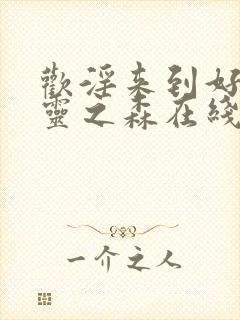 歡淫来到好
靈之森在綫
一介之人